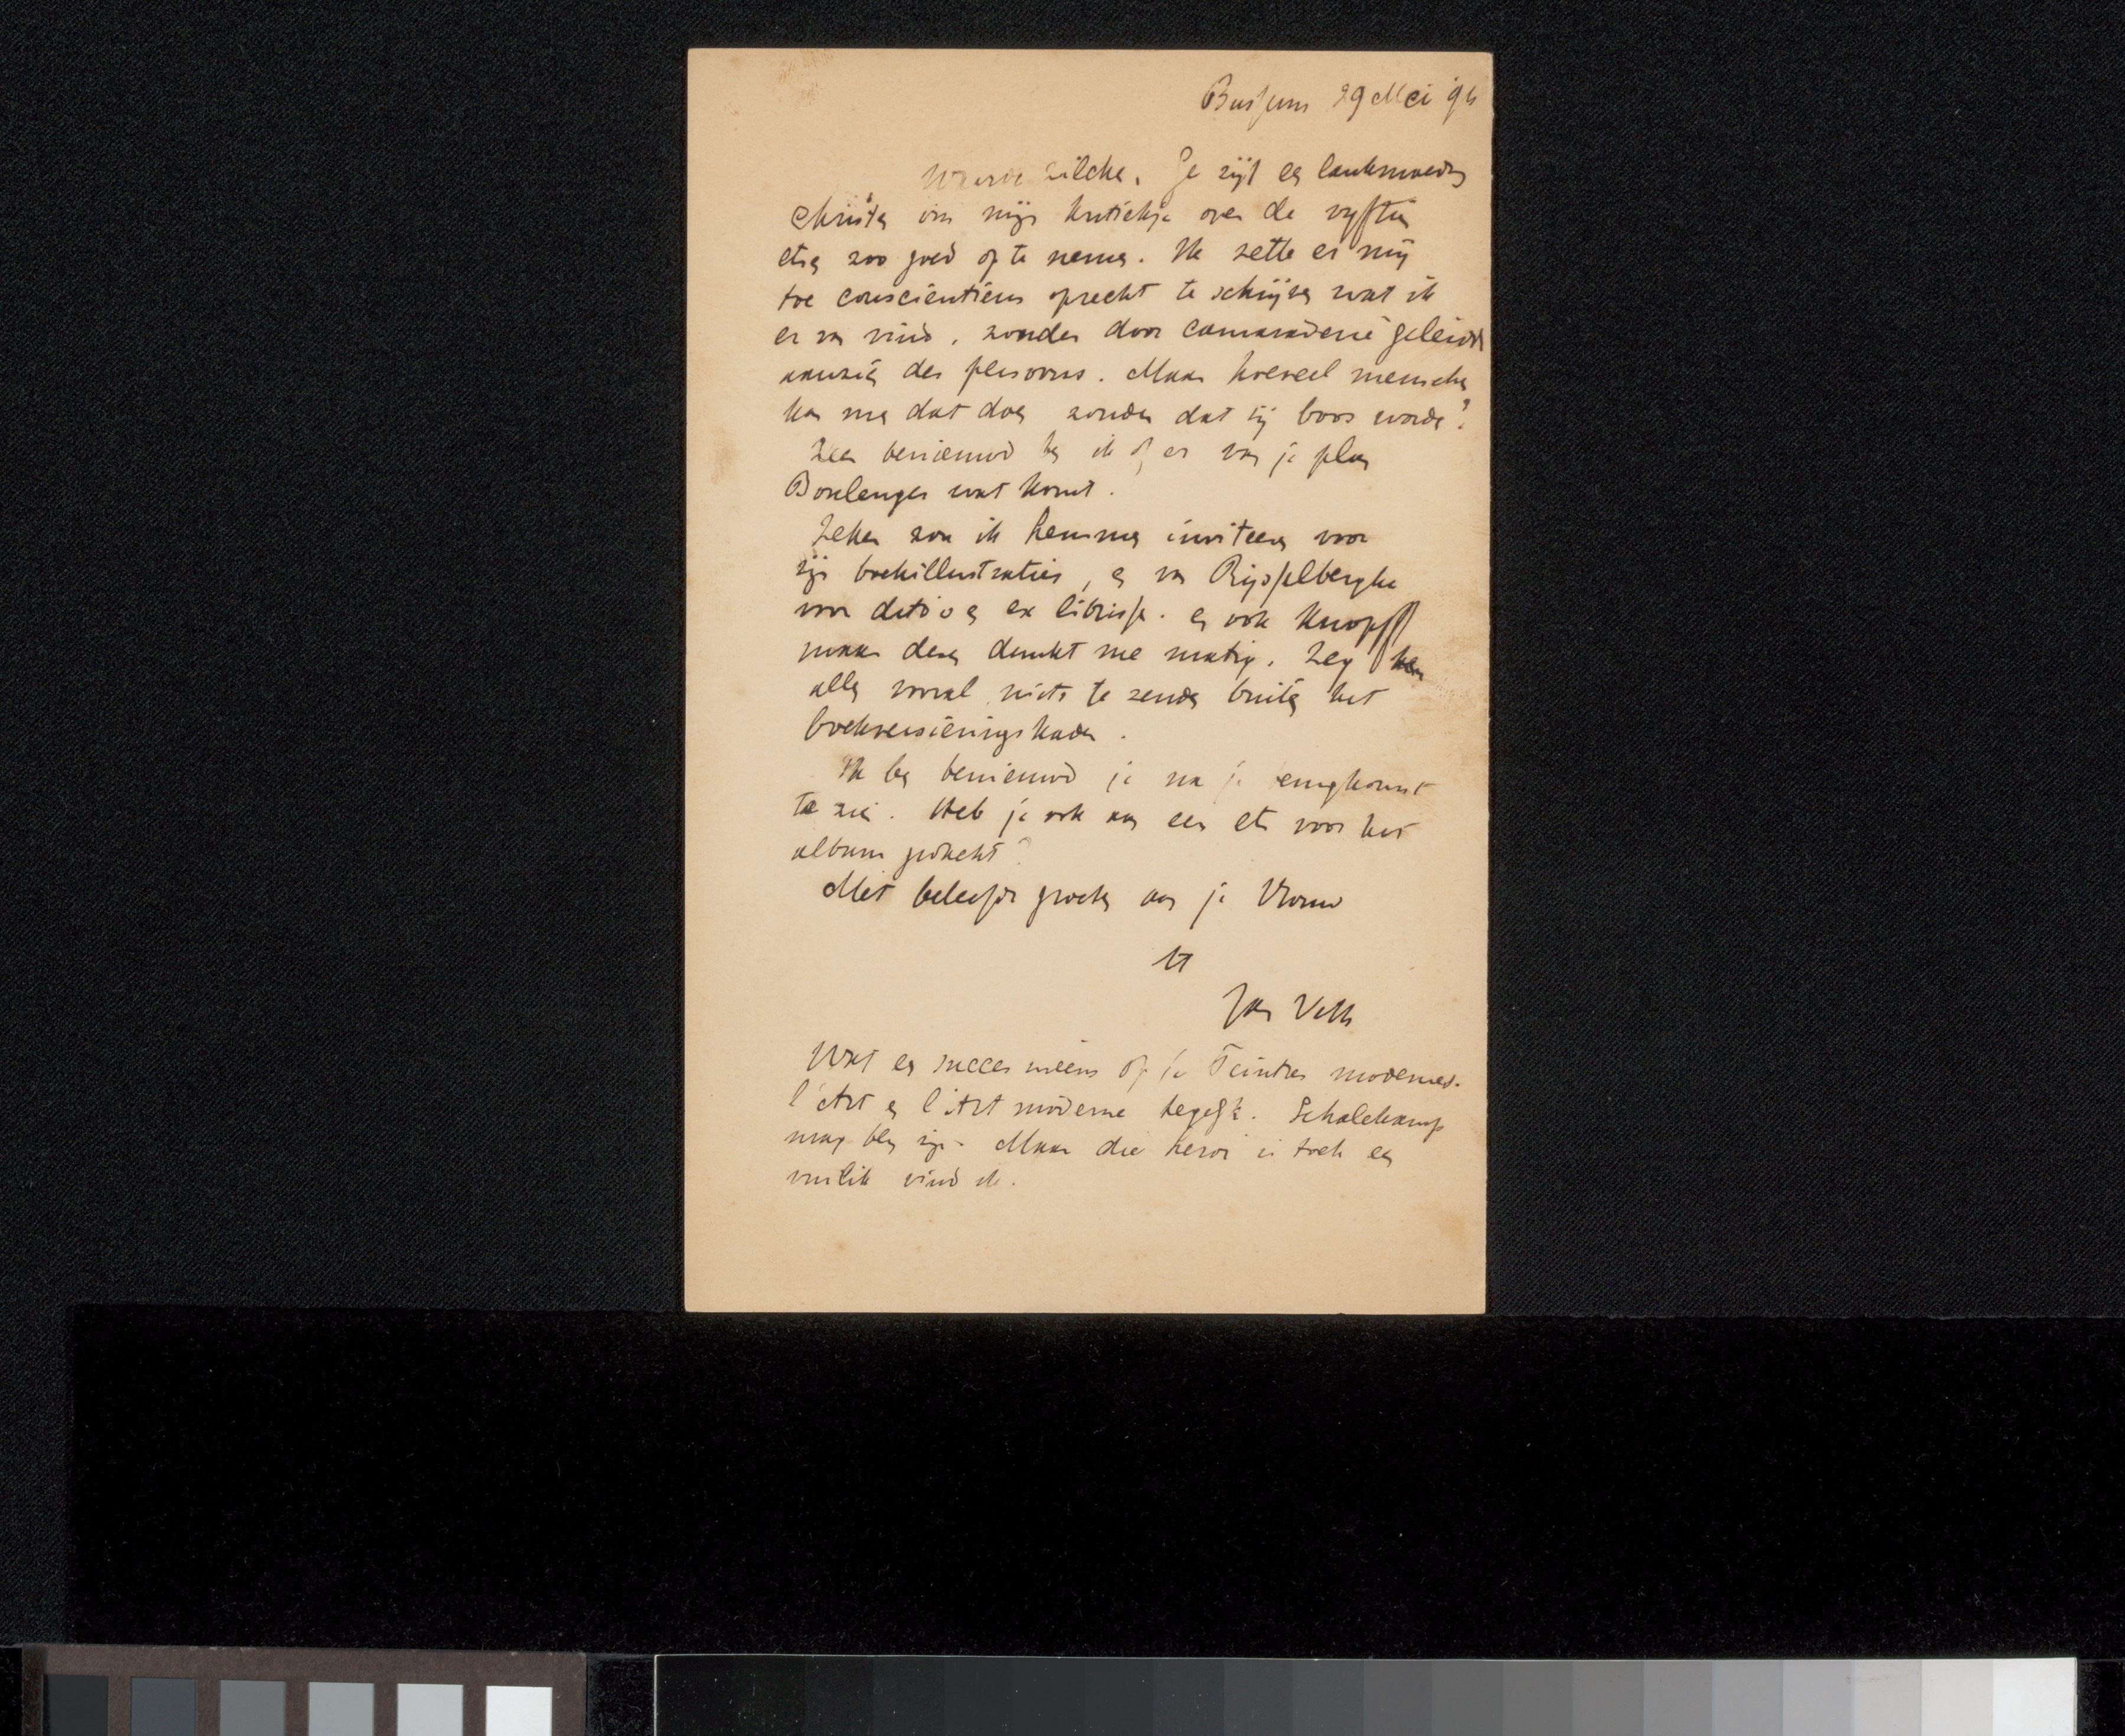 Bussum 29 Mei 9
Waarde Zilcken. Je zijt een lankmoedig
Christen om mijn kritiekje over de vyftien
etsen zoo goed op te nemen. Ik zette er mij
toe conscientieus oprecht te schrijven wat ik
er van vind, zonder door camaraderie geleid
aanzien des persoons. Maar hoeveel menschen
kan men dat doen zonder dat zij boos worden?
Zeer benieuwd ben ik of er van je plan
Boulenger wat komt.
Zeker zou ik Lemmen inviteeren voor
zijn boekillustraties, en van Rijsselberghe
voor dito's en ex librissen. en ook Knopff
maar deze dunkt me matig. Zeg hen
allen vooral niets te zenden buiten het
boekversieringskader.
Ik ben benieuwd je na je terugkomst
te zien. Heb je ook aan een ets voor het
album gedacht?
Met beleefde groeten aan je Vrouw
tt
Jan Veth
Wat een succes ineens op je Peintres modernes.
l'Art en l'Art moderne tegelijk. Schalekamp
mag blij zijn. Maar die is toch een
vuilik vind ik.